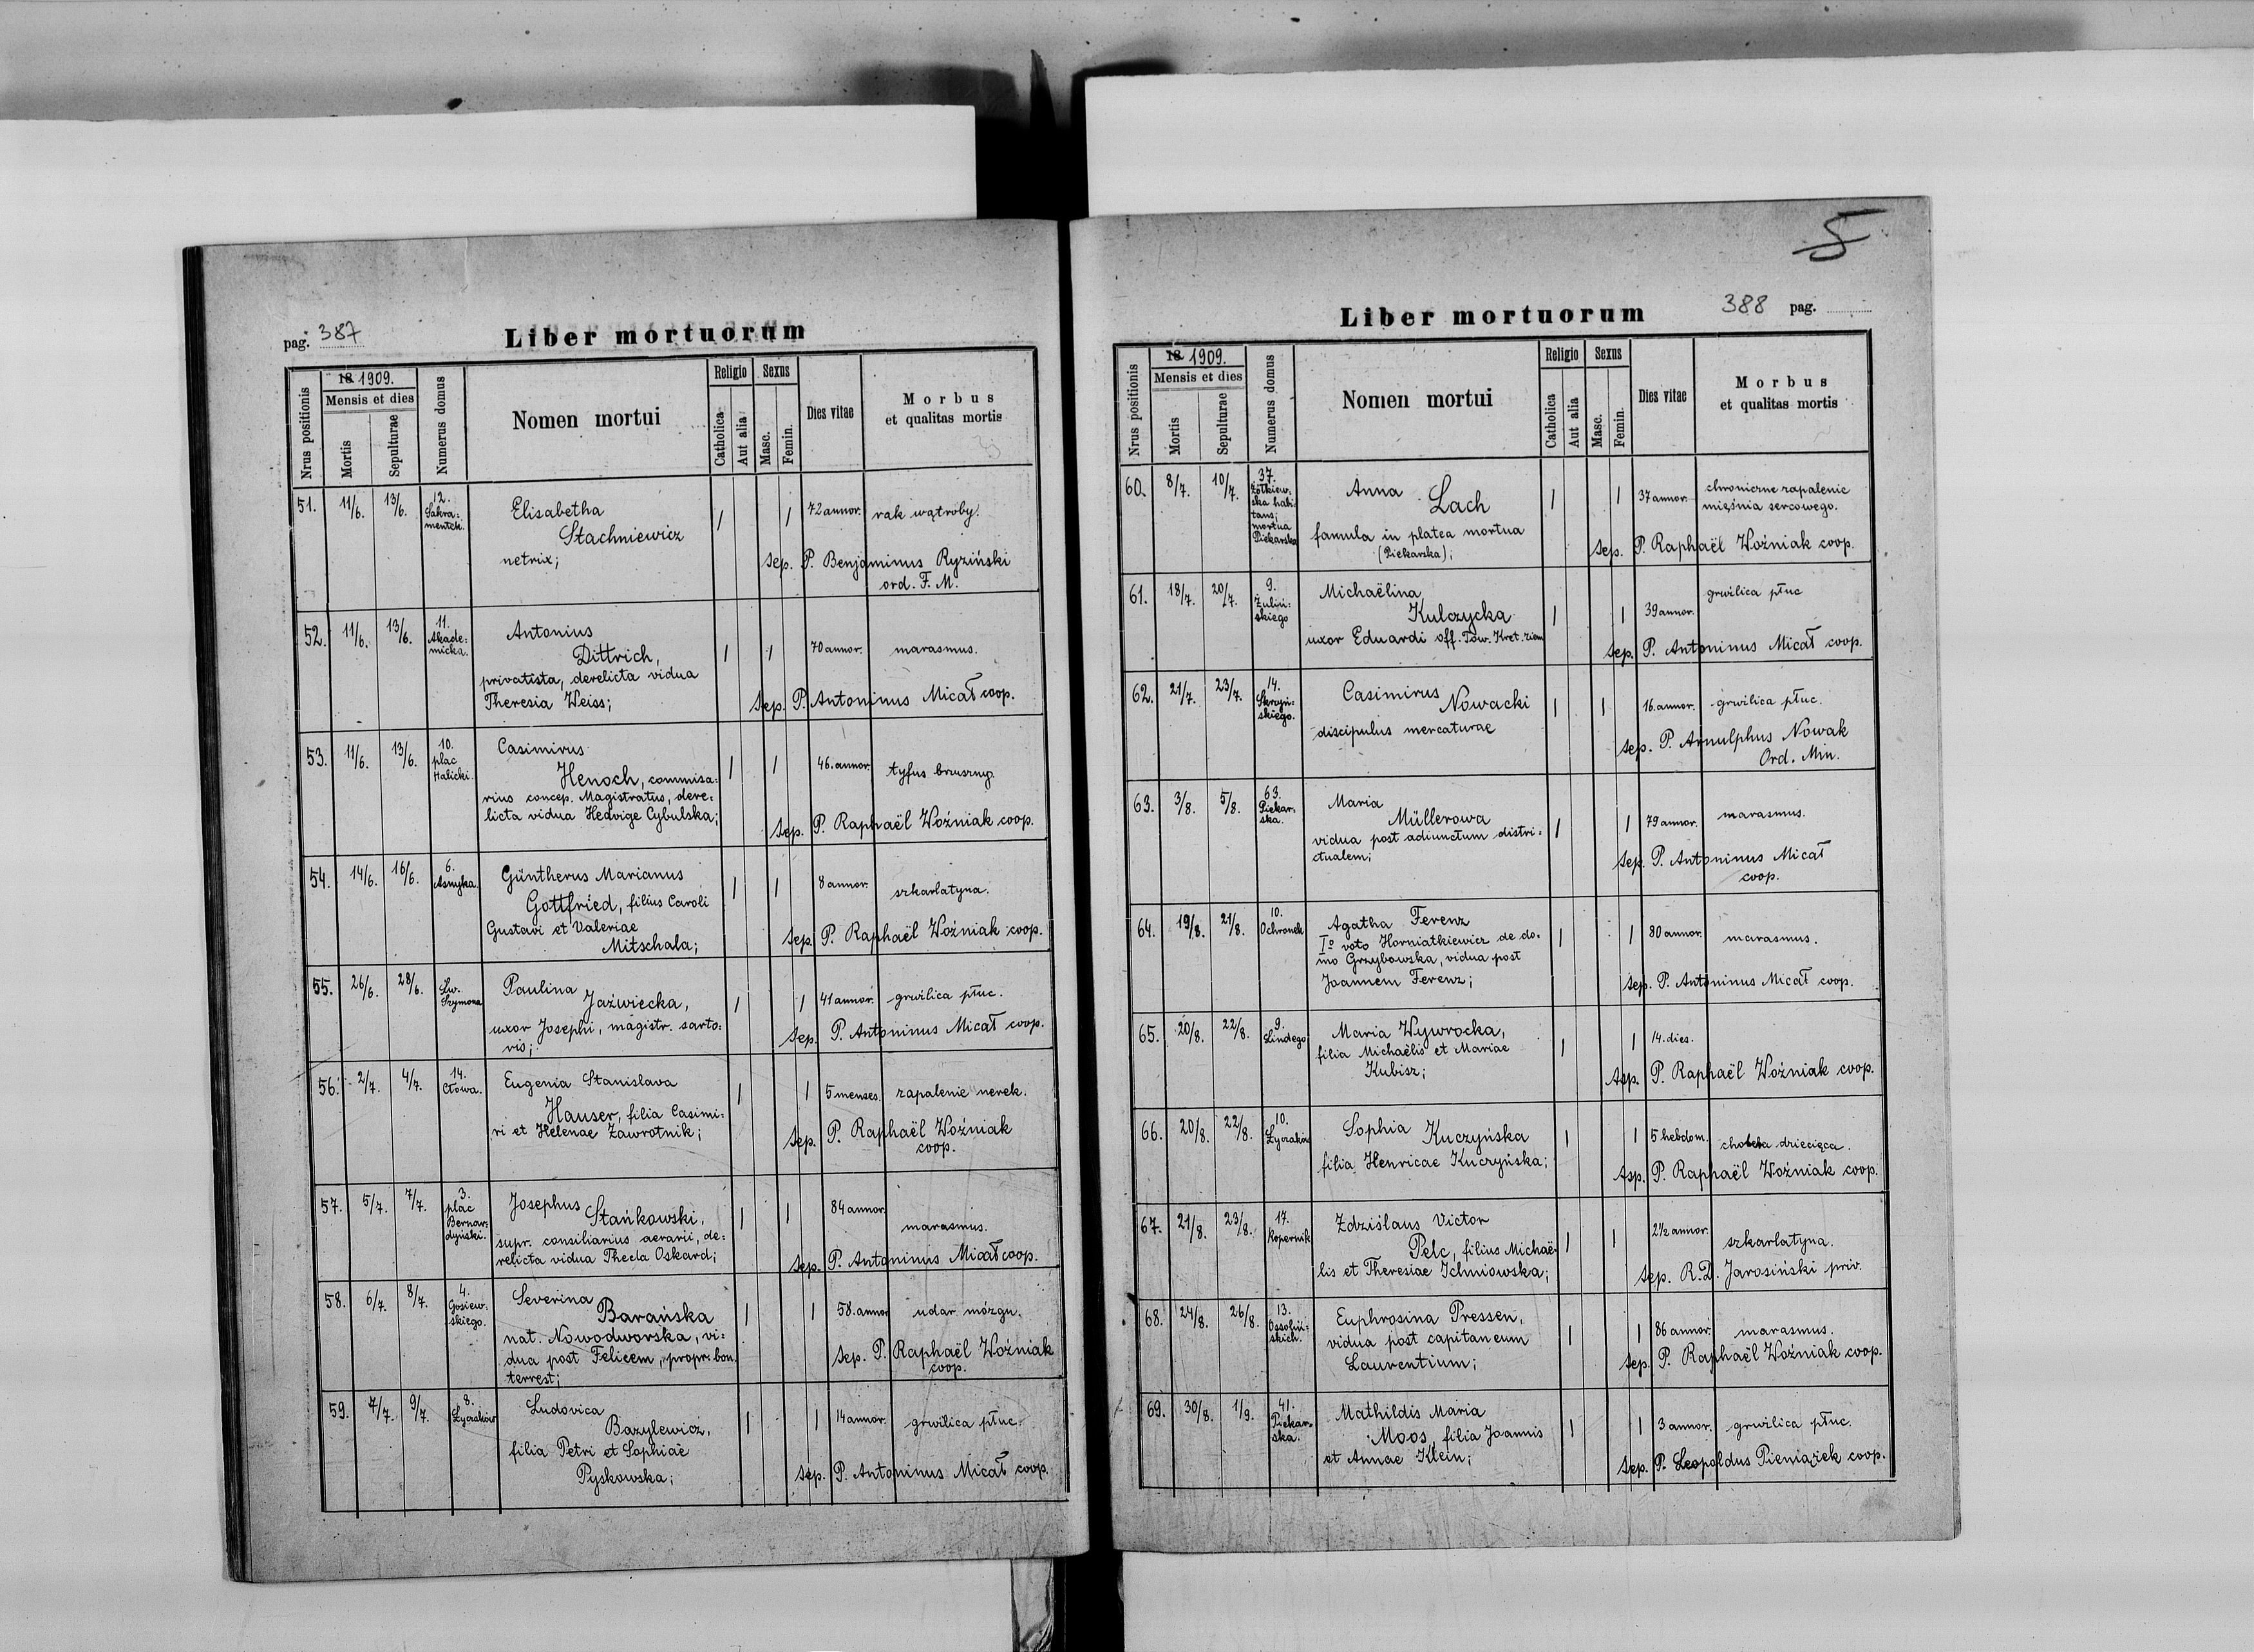 pag. 387
Liber mortuorum
Nrus positionis
18 1909.
Mensis et dies
Mortis
Sepulturae
Numerus domus
Nomen mortui
Religio
Catholica
Aut alia
Sexus
Masc.
Femin.
Dies vitae
Morbus
et qualitas mortis
51. 11/6. 13/6. 12. Sakra=
mentek.
Elisabetha
Stachniewicz
netrix;
1 1 72 annor. rak wątroby.
sep. P. Benjaminus Ryziński
ord. F. M.
52. 11/6. 13/6. 11. Akade=
micka.
Antonius
Dittrich,
privatista, derelicta vidua
Theresia Weiss;
1 1 70 annor. marasmus.
sep. P. Antoninus Micał coop.
53. 11/6. 13/6. 10.
plac
Halicki.
Casimirus
Henoch, commisa=
rius concep. Magistratus, dere=
licta vidua Hedvige Cybulska;
1 1 46. annor. tyfus brzuszny.
sep. P. Raphaël Woźniak coop.
54. 14/6. 16/6. 6.
Asnyka.
Güntherus Marianus
Gottfried, filius Caroli
Gustavi et Valeriae
Mitschala;
1 1 8 annor. szkarlatyna.
sep. P. Raphaël Woźniak coop.
55. 26/6. 28/6. Św.
Szymona
Paulina
Jaźwiecka,
uxor Josephi, magistr. sarto=
ris;
1 1 41 annor. gruźlica płuc.
sep. P. Antoninus Micał coop.
56. 2/7. 4/7. 14.
Cłowa.
Eugenia Stanislava
Hauser, filia Casimi=
ri et Helenae Zawrotnik;
1 1 5 menses. zapalenie nerek.
sep. P. Raphaël Woźniak
coop.
57. 5/7. 7/7. 3.
plac
Bernar=
dyński.
Josephus
Stańkowski,
supr. consiliarius aerarii, de=
relicta vidua Thecla Oskard;
1 1 84 annor. marasmus.
sep. P. Antoninus Micał coop.
58. 6/7. 8/7. 4.
Gosiew=
skiego.
Severina
Barańska
nat. Nowodworska, vi=
dua post Felicem, propr. bon.
terrest;
1 1 58. annor. udar mózgu.
sep. P. Raphaël Woźniak
coop.
59. 7/7. 9/7. 8.
Łyczaków
Ludovica
Bazylewicz,
filia Petri et Sophiae
Pyskowska;
1 1 14 annor. gruźlica płuc.
sep. P. Antoninus Micał coop.
5
Liber mortuorum
388 pag.
Nrus positionis
18 1909.
Mensis et dies
Mortis
Sepulturae
Numerus domus
Nomen mortui
Religio
Catholica
Aut alia
Sexus
Masc.
Femin.
Dies vitae
Morbus
et qualitas mortis
60. 8/7. 10/7. 37.
Żółkiew=
ska habi=
tans;
mortua
Piekarska
Anna
Lach
famula in platea mortua
(Piekarska);
1 1 37 annor. chroniczne zapalenie
mięśnia sercowego.
sep. P. Raphaël Woźniak coop.
61. 18/7. 20/7. 9.
Żuliń=
skiego
Michaëlina
Kulczycka
uxor Eduardi off. Tow. Kret. ziem
1 1 39 annor. gruźlica płuc
sep. P. Antoninus Micał coop.
62. 21/7. 23/7. 14.
Skrzyń=
skiego.
Casimirus
Nowacki
discipulus mercaturae
1 1 16. annor. gruźlica płuc.
sep. P. Arnulphus Nowak
Ord. Min.
63. 3/8. 5/8. 63.
Piekar=
ska.
Maria
Müllerowa
vidua post adiunctum distri=
ctualem;
1 1 79 annor. marasmus.
sep. P. Antoninus Micał
coop.
64. 19/8. 21/8. 10.
Ochronek
Agatha Ferenz
Iº voto Horniatkiewicz de do=
mo Grzybowska, vidua post
Joannem Ferenz;
1 1 80 annor. marasmus.
sep. P. Antoninus Micał coop.
65. 20/8. 22/8. 9.
Lindego
Maria Wywrocka,
filia Michaëlis et Mariae
Kubisz;
1 1 14. dies.
Asp. P. Raphaël Woźniak coop.
66. 20/8. 22/8. 10.
Łyczaków
Sophia Kuczyńska
filia Henricae Kuczyńska;
1 1 5 hebdom. cholera dziecięca.
Asp. P. Raphaël Woźniak coop.
67. 21/8. 23/8. 17.
Kopernik
Zdzislaus Victor
Pelc, filius Michaë=
lis et Theresiae Ichniowska;
1 1 2½ annor. szkarlatyna.
sep. R. D. Jarosiński priv.
68. 24/8. 26/8. 13.
Ossoliń=
skich.
Euphrosina Pressen,
vidua post capitaneum
Laurentium;
1 1 86 annor. marasmus.
sep. P. Raphaël Woźniak coop.
69. 30/8. 1/9. 41.
Piekar=
ska.
Mathildis Maria
Moos, filia Joannis
et Annae Klein;
1 1 3 annor. gruźlica płuc.
sep. P. Leopoldus Pieniążek coop.